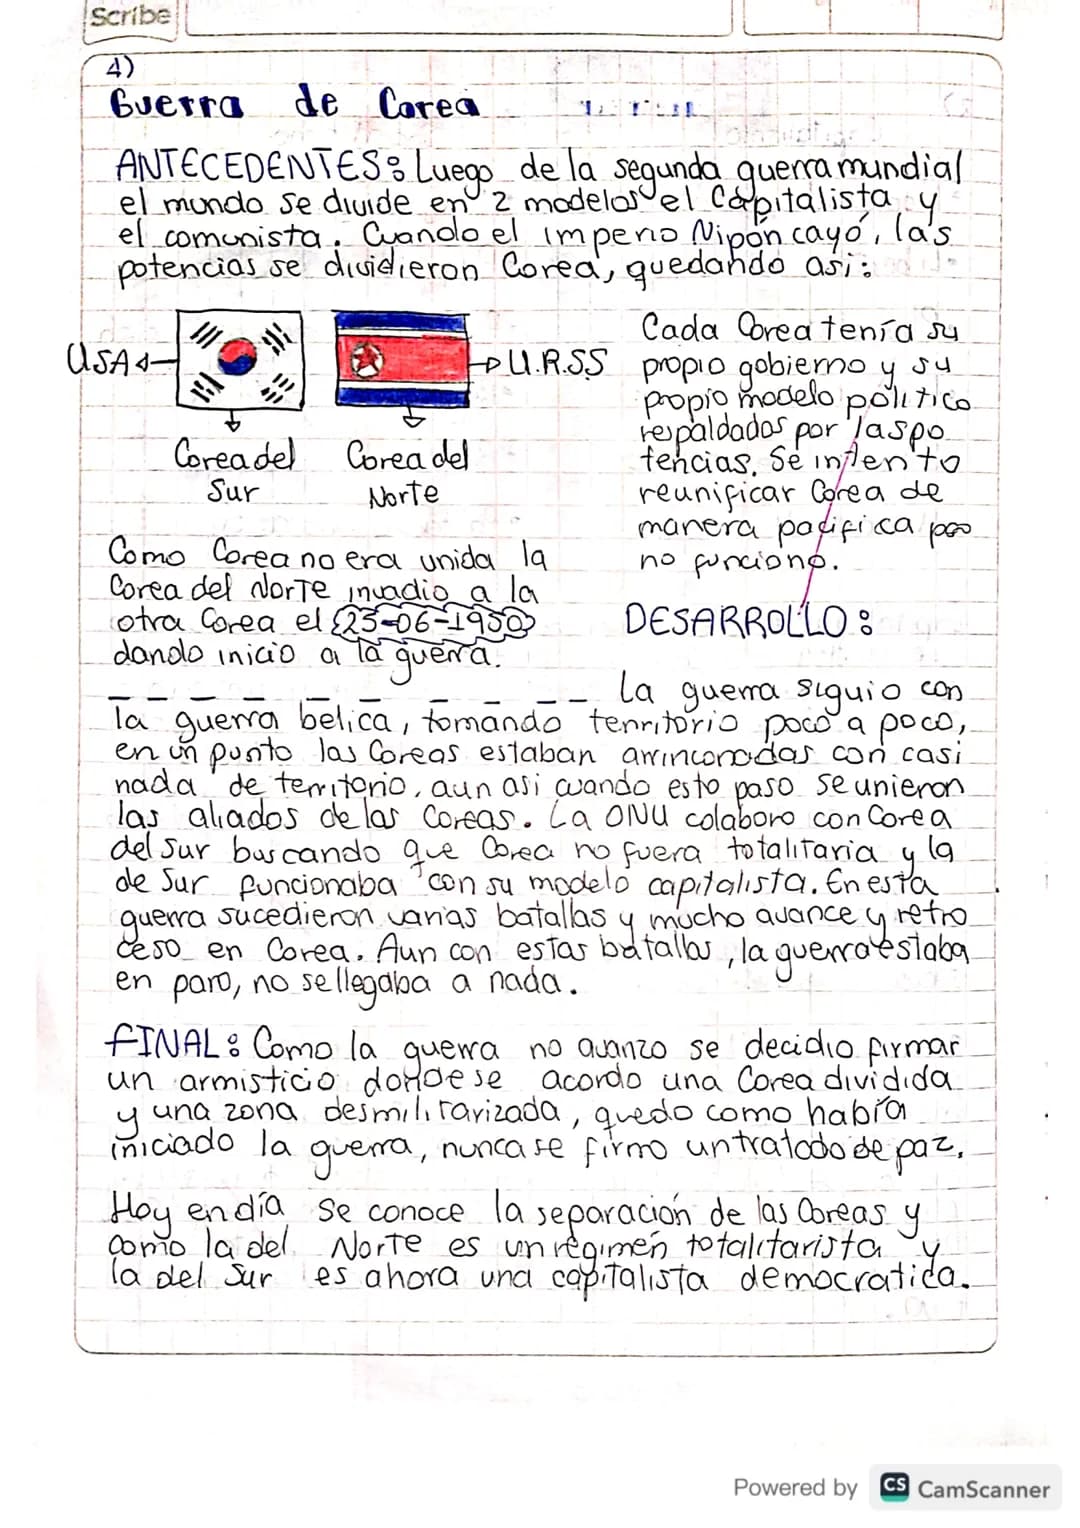 Scribe
4)
Guerra de Corea
ANTECEDENTES: Luego de la segunda guerra mundial
el mundo se divide en 2 modelos el capitalista y
el comunista. Cuando el imperio Nipón cayó, las
potencias se dividieron Corea, quedando asi:
USA
U.R.S.S
Corea del
Sur
Corea del
Norte
Cada Corea tenía su
propio gobierno y su
propio modelo politico
respaldados por las po
tencias. Se intento
reunificar Corea de
manera pacifica pero
no funciono.
Como Corea no era unida la
Corea del Norte invadio a la
otra Corea el 25-06-1950
dando inicio a la guerra.
DESARROLLO:
La guerra siguio con
la guerra belica, tomando territorio poco a poco,
en un punto las Coreas estaban arrinconadas con casi
nada de territorio, aun asi cuando esto paso se unieron
las aliados de las Coreas. La ONU colaboro con Corea
del Sur buscando que Corea no fuera totalitaria y la
de Sur funcionaba con su modelo capitalista. En esta
guerra sucedieron varias batallas y mucho avance y retro
ceso en Corea. Aun con estas batallas, la guerra estaba
en paro, no se llegaba a nada.
FINAL: Como la guerra no avanzo se decidio firmar
un armisticio donde se acordo una Corea dividida
y una zona desmilitarizada, quedo como había
iniciado la guerra, nunca se firmo un tratado de paz.
Hoy en día se conoce la separación de las Coreas y
como la del Norte es un régimen totalitarista y
la del Sur es ahora una capitalista democratica.
Powered by CS CamScanner